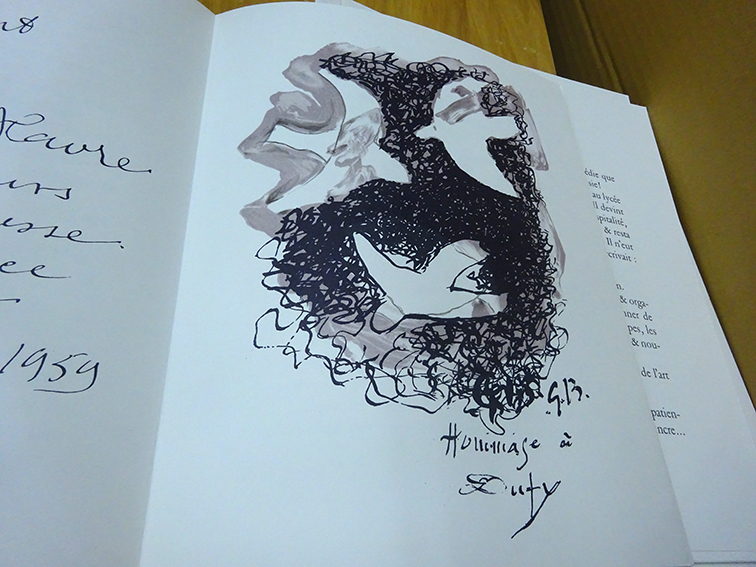 Havre
1959
G.B.
Hommage à
Dufy
édie que
sie!
au lycée
il devint
spitalité,
& resta
Il n'eut
crivait :
n.
& orga-
nner de
pes, les
& nou-
de l'art
patien-
incre...